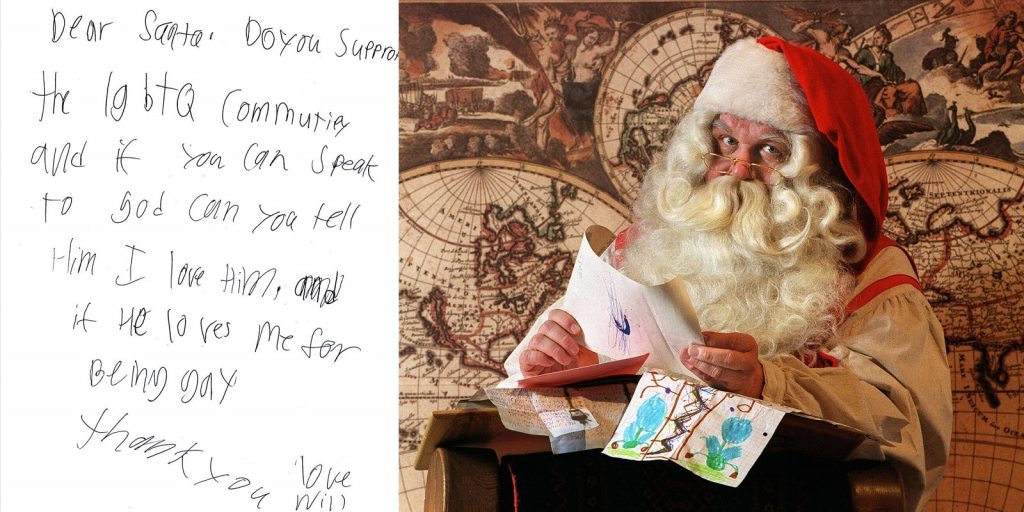 Dear Santa. Do you Suppor
the lgbtQ Community
and if you can speak
to god can you tell
Him I love Him, and
if He loves me for
Being gay
Thank you love
Will
SEPTENTRIONALIS